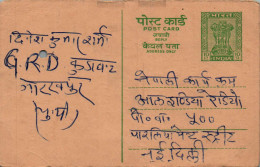 पोस्ट कार्ड
POST CARD
जवाबी
REPLY
केवल पता
ADDRESS ONLY
भारत INDIA
दिनेश कुमार शर्मा
G.R.D
गोरखपुर
(यू॰पी॰)
नेपाली कार्य क्रम
आल इण्डिया रेडियो
पो॰ बा॰ ५००
पार्लियामेन्ट स्ट्रीट
नई दिल्ली